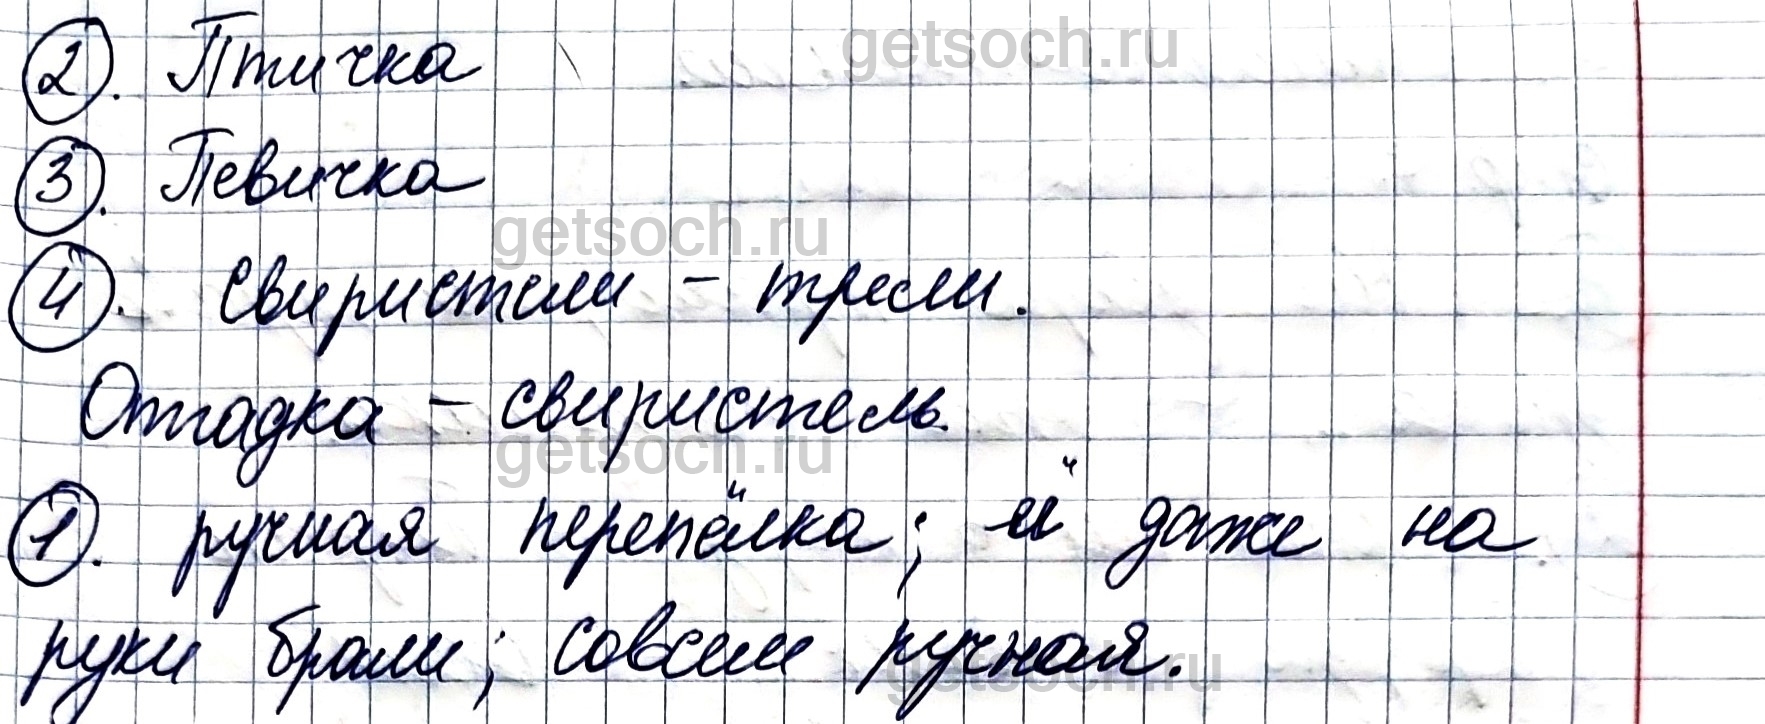 getsoch.ru
2. Птичка
3. Певичка
getsoch.ru
4. Свиристели - трели.
Отгадка - свиристель.
getsoch.ru
1. ручная перепёлка; её даже на
руки брали; совсем ручная.
getsoch.ru